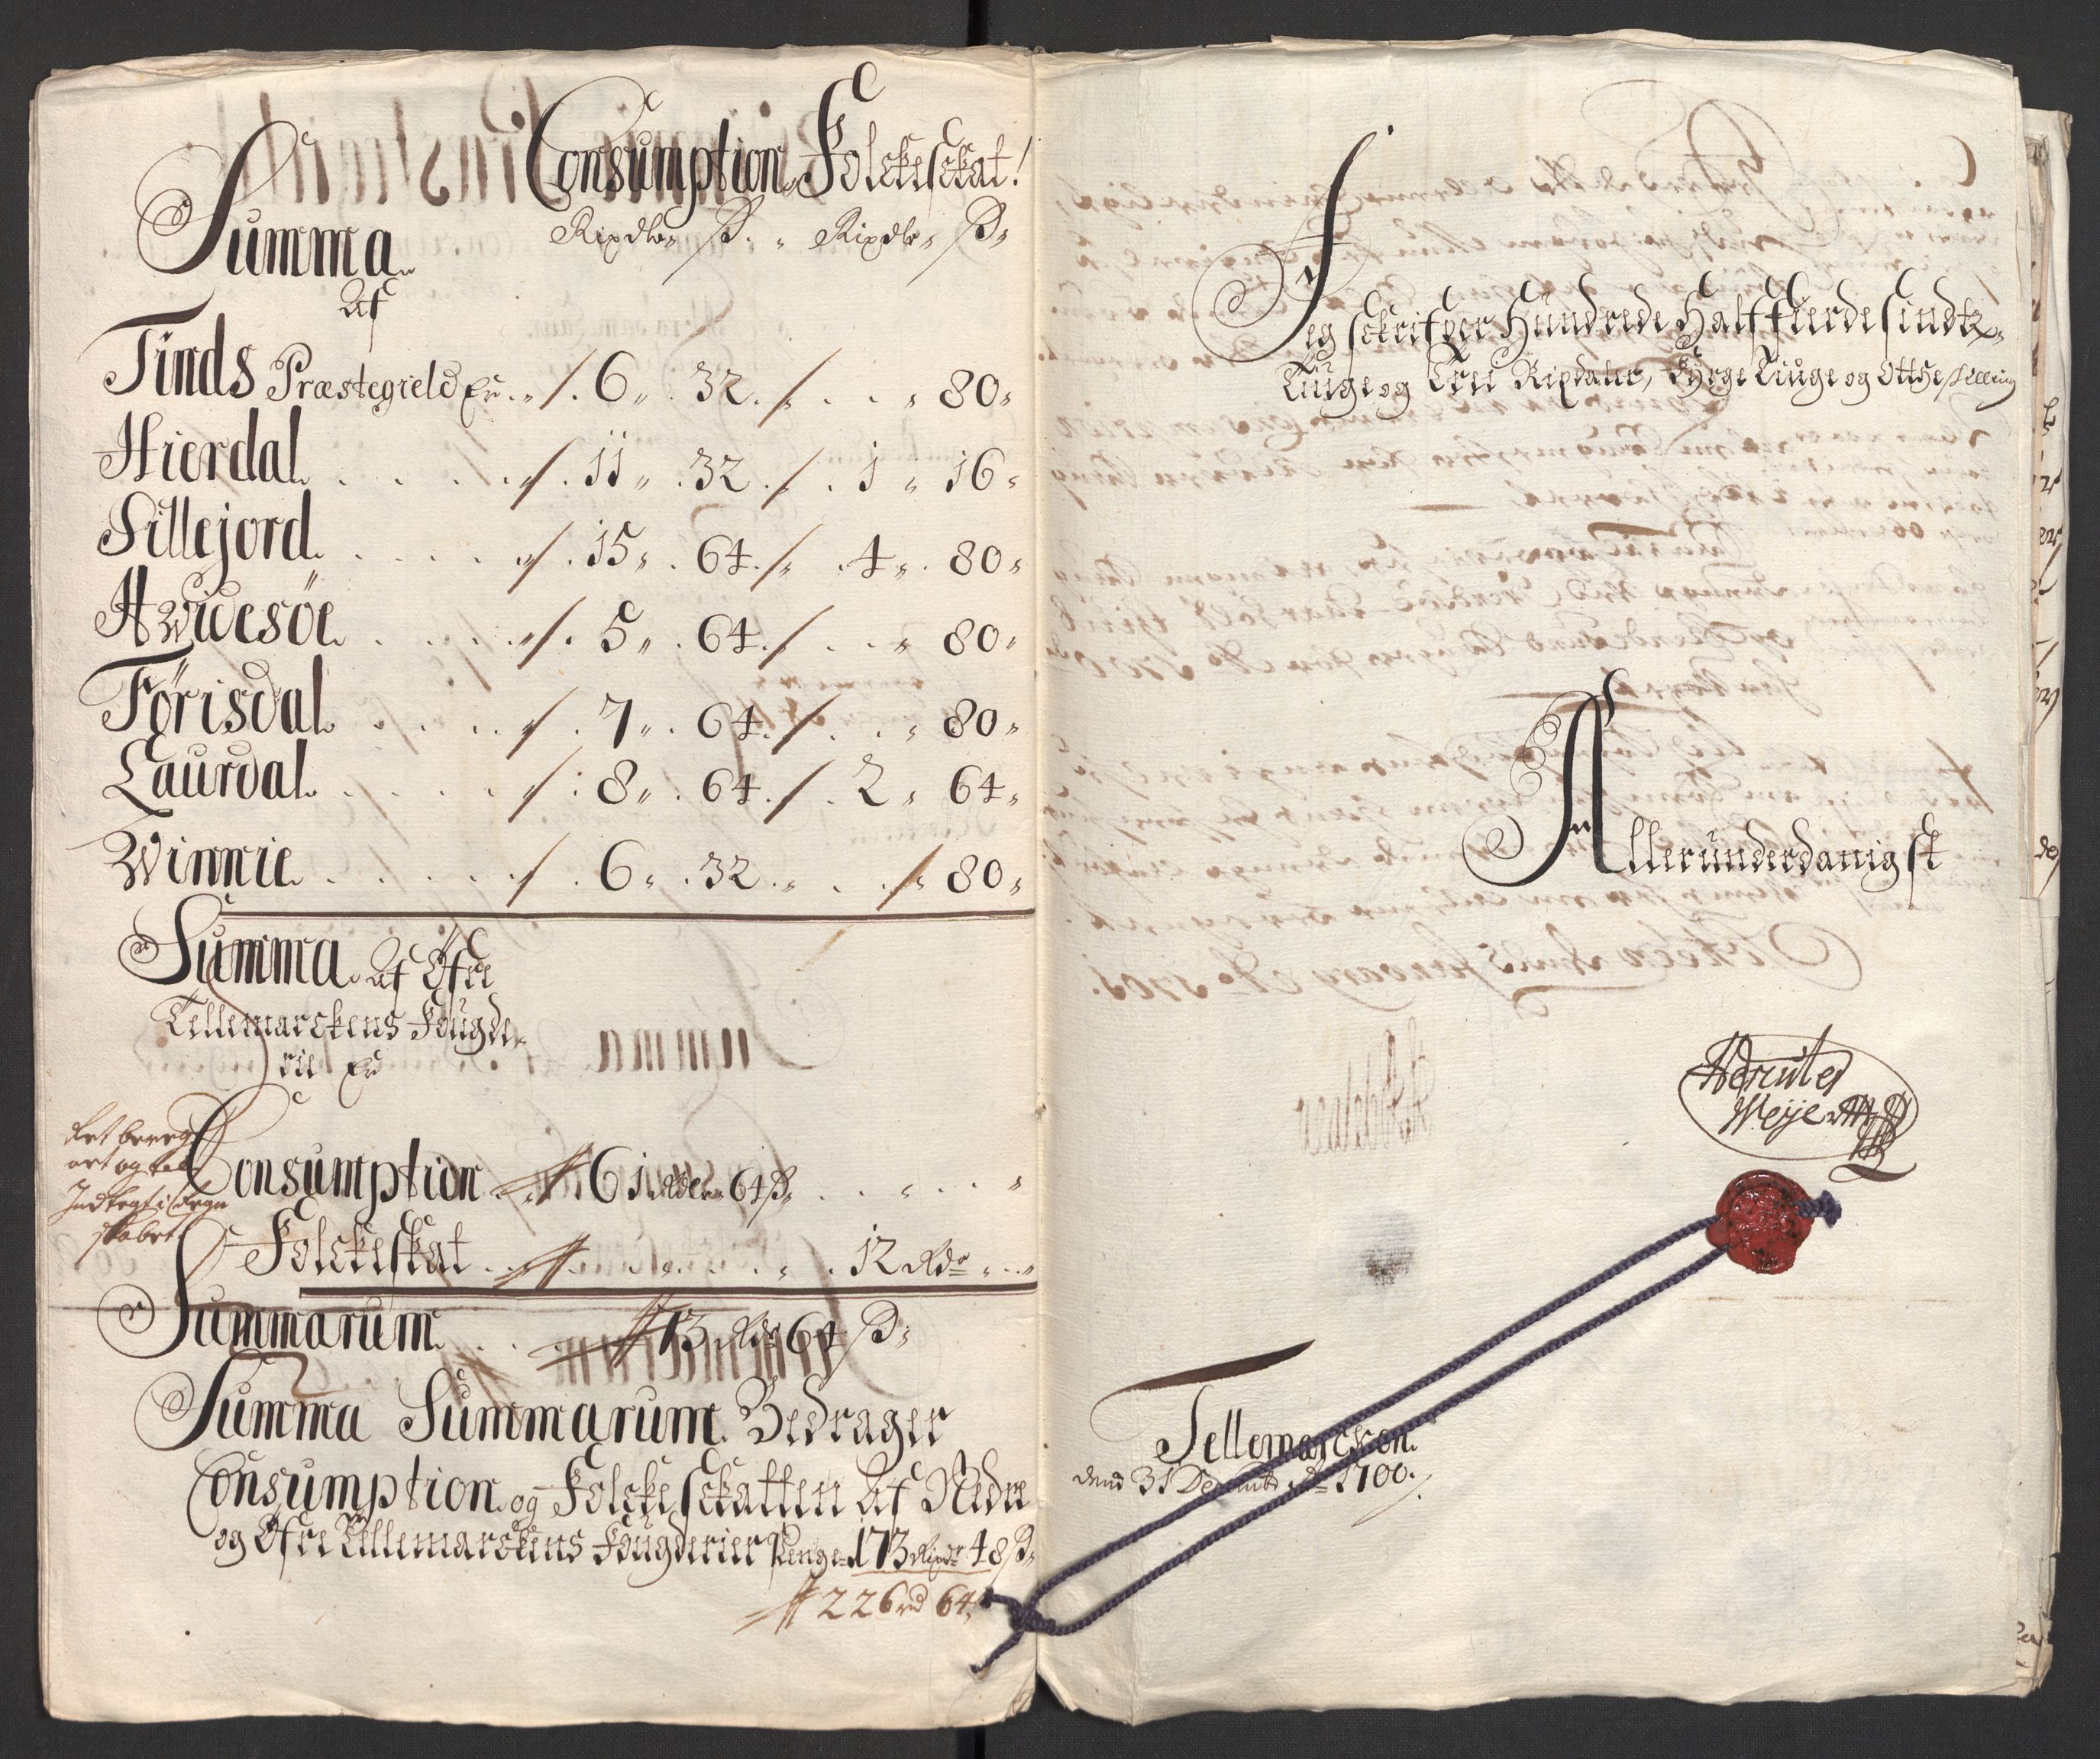 Consumption, Folckeskat!
Rixdlr, ß. „ Rixdlr, ß,
Summa
Af
Tinds Præstegield Er. 6„ 32. „ 80„
Hierdal. 11„ 32. 1 „ 16„
Sillejord. 15„ 64. 4„ 80„
Hwidesöe. 5„ 64. „ 80„
Förisdal. 7„ 64. „ 80„
Laurdal. 8„ 64. 2„ 64„
Winnie. 6„ 32. 80„
Summa. Af Öfre
Tellemarckens Fougde-
rie Er
Consumption 61 Rdlr 64 ß,
Folckeskat 12 Rdr
Summarum. 73 Rdr 64 ß,
Summa Summarum. Bedrager
Consumption og Folckeskatten Af Nedre
og Öfre Tellemarckens Fougderier Penge 173 Rixdr 48 ß,
226 rd 64,
det bereg
ort og
Indtegt i Regn
skabet
Jeg sckrifver Hundrede Halffierdesindtz-
Tiuge og Tree Rixdaler, Fyrge Tiuge og Otthe skilling
Allerunderdanigst
Hercules
Weyer
Tellemarcken.
dend 31 Decemb: Ao 1700.